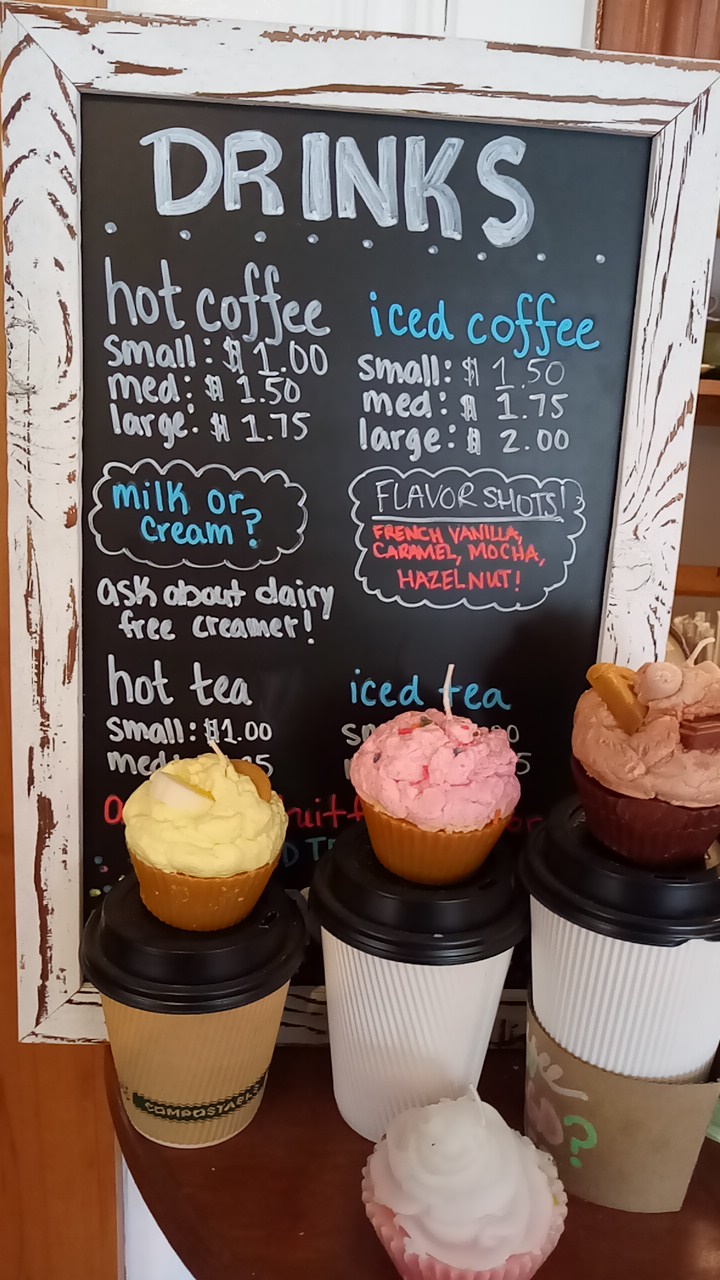 DRINKS
hot coffee
small: $1.00
med: $1.50
large: $1.75
iced coffee
small: $1.50
med: $1.75
large: $2.00
milk or
cream?
FLAVOR SHOTS!
FRENCH VANILLA,
CARAMEL, MOCHA,
HAZELNUT!
ask about dairy
free creamer!
hot tea
small: $1.00
med
iced tea
COMPOSTABLE
?